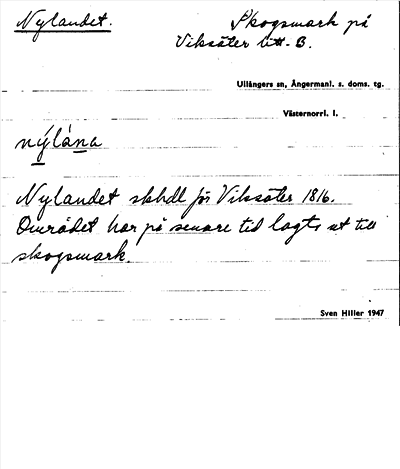 Nylandet. Skogsmark på
Viksäter litt. B.
Ullångers sn, Ångermanl. s. doms. tg.
Västernorrl. l.
nýlána
Nylandet skhdl för Viksäter 1816.
Området har på senare tid lagts ut till
skogsmark.
Sven Hiller 1947